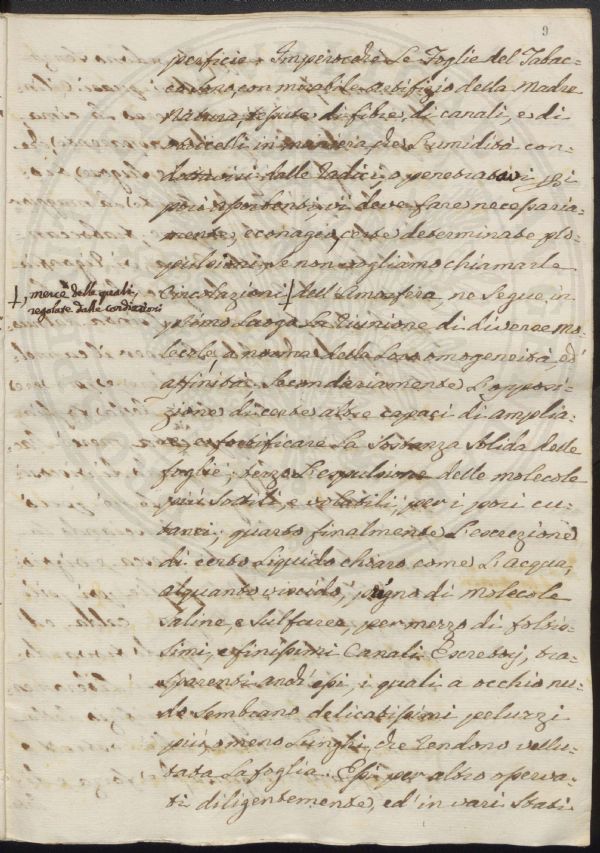 9
perficie. Imperocchè le Foglie del Tabac-
co sono, con mirabile artifizio della Madre
Natura, tessute di fibre, di canali, e di
in maniera, che l'umidità con-
dottavisi dalle Radici, o penetratavi pei
pori assorbenti, vi deve fare necessaria-
mente, certe determinate
pulsioni, se non vogliamo chiamarle
Circolazioni † dell'Atmosfera, ne segue, in
†, mercè delle quali,
regolate dalle condizioni
primo luogo la riunione di diverse mo-
lecole a norma della loro omogeneità, ed
affinità: Secondariamente l'apposi-
zione di certe altre capaci di amplia-
re, e fortificare la sostanza solida delle
foglie; terzo l'espulsione delle molecole
più sottili, e volatili, per i pori cu-
tanei; quarto finalmente l'escrezione
di certo liquido chiaro come l'acqua,
alquanto viscido, pregno di molecole
saline, e sulfuree, per mezzo di foltis-
simi, e finissimi Canali Escretorj, tra-
sparenti anch'essi, i quali a occhio nu-
do sembrano delicatissimi peluzzi
più o meno lunghi, che rendono vellu-
tata la foglia. Essi per altro osserva-
ti diligentemente, ed in vari stati